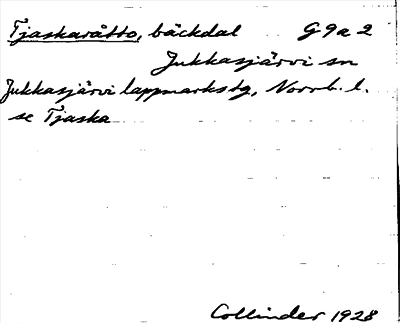 Tjaskaråtto, bäckdal G9a2
Jukkasjärvi sn
Jukkasjärvi lappmarkstg, Norrb. l.
se Tjaska
Collinder 1928